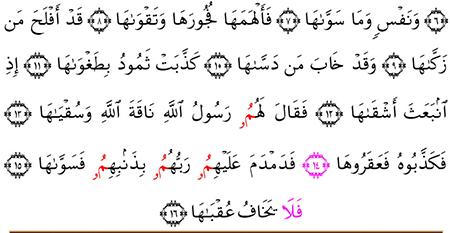 ﴿٦﴾ وَنَفْسٍ وَمَا سَوَّىٰهَا ﴿٧﴾ فَأَلْهَمَهَا فُجُورَهَا وَتَقْوَىٰهَا ﴿٨﴾ قَدْ أَفْلَحَ مَن
زَكَّىٰهَا ﴿٩﴾ وَقَدْ خَابَ مَن دَسَّىٰهَا ﴿١٠﴾ كَذَّبَتْ ثَمُودُ بِطَغْوَىٰهَا ﴿١١﴾ إِذِ
ٱنۢبَعَثَ أَشْقَىٰهَا ﴿١٢﴾ فَقَالَ لَهُمُۥ رَسُولُ ٱللَّهِ نَاقَةَ ٱللَّهِ وَسُقْيَٰهَا ﴿١٣﴾
فَكَذَّبُوهُ فَعَقَرُوهَا ﴿١٤﴾ فَدَمْدَمَ عَلَيْهِمُۥ رَبُّهُمُۥ بِذَنۢبِهِمُۥ فَسَوَّىٰهَا ﴿١٥﴾
فَلَا يَخَافُ عُقْبَٰهَا ﴿١٦﴾